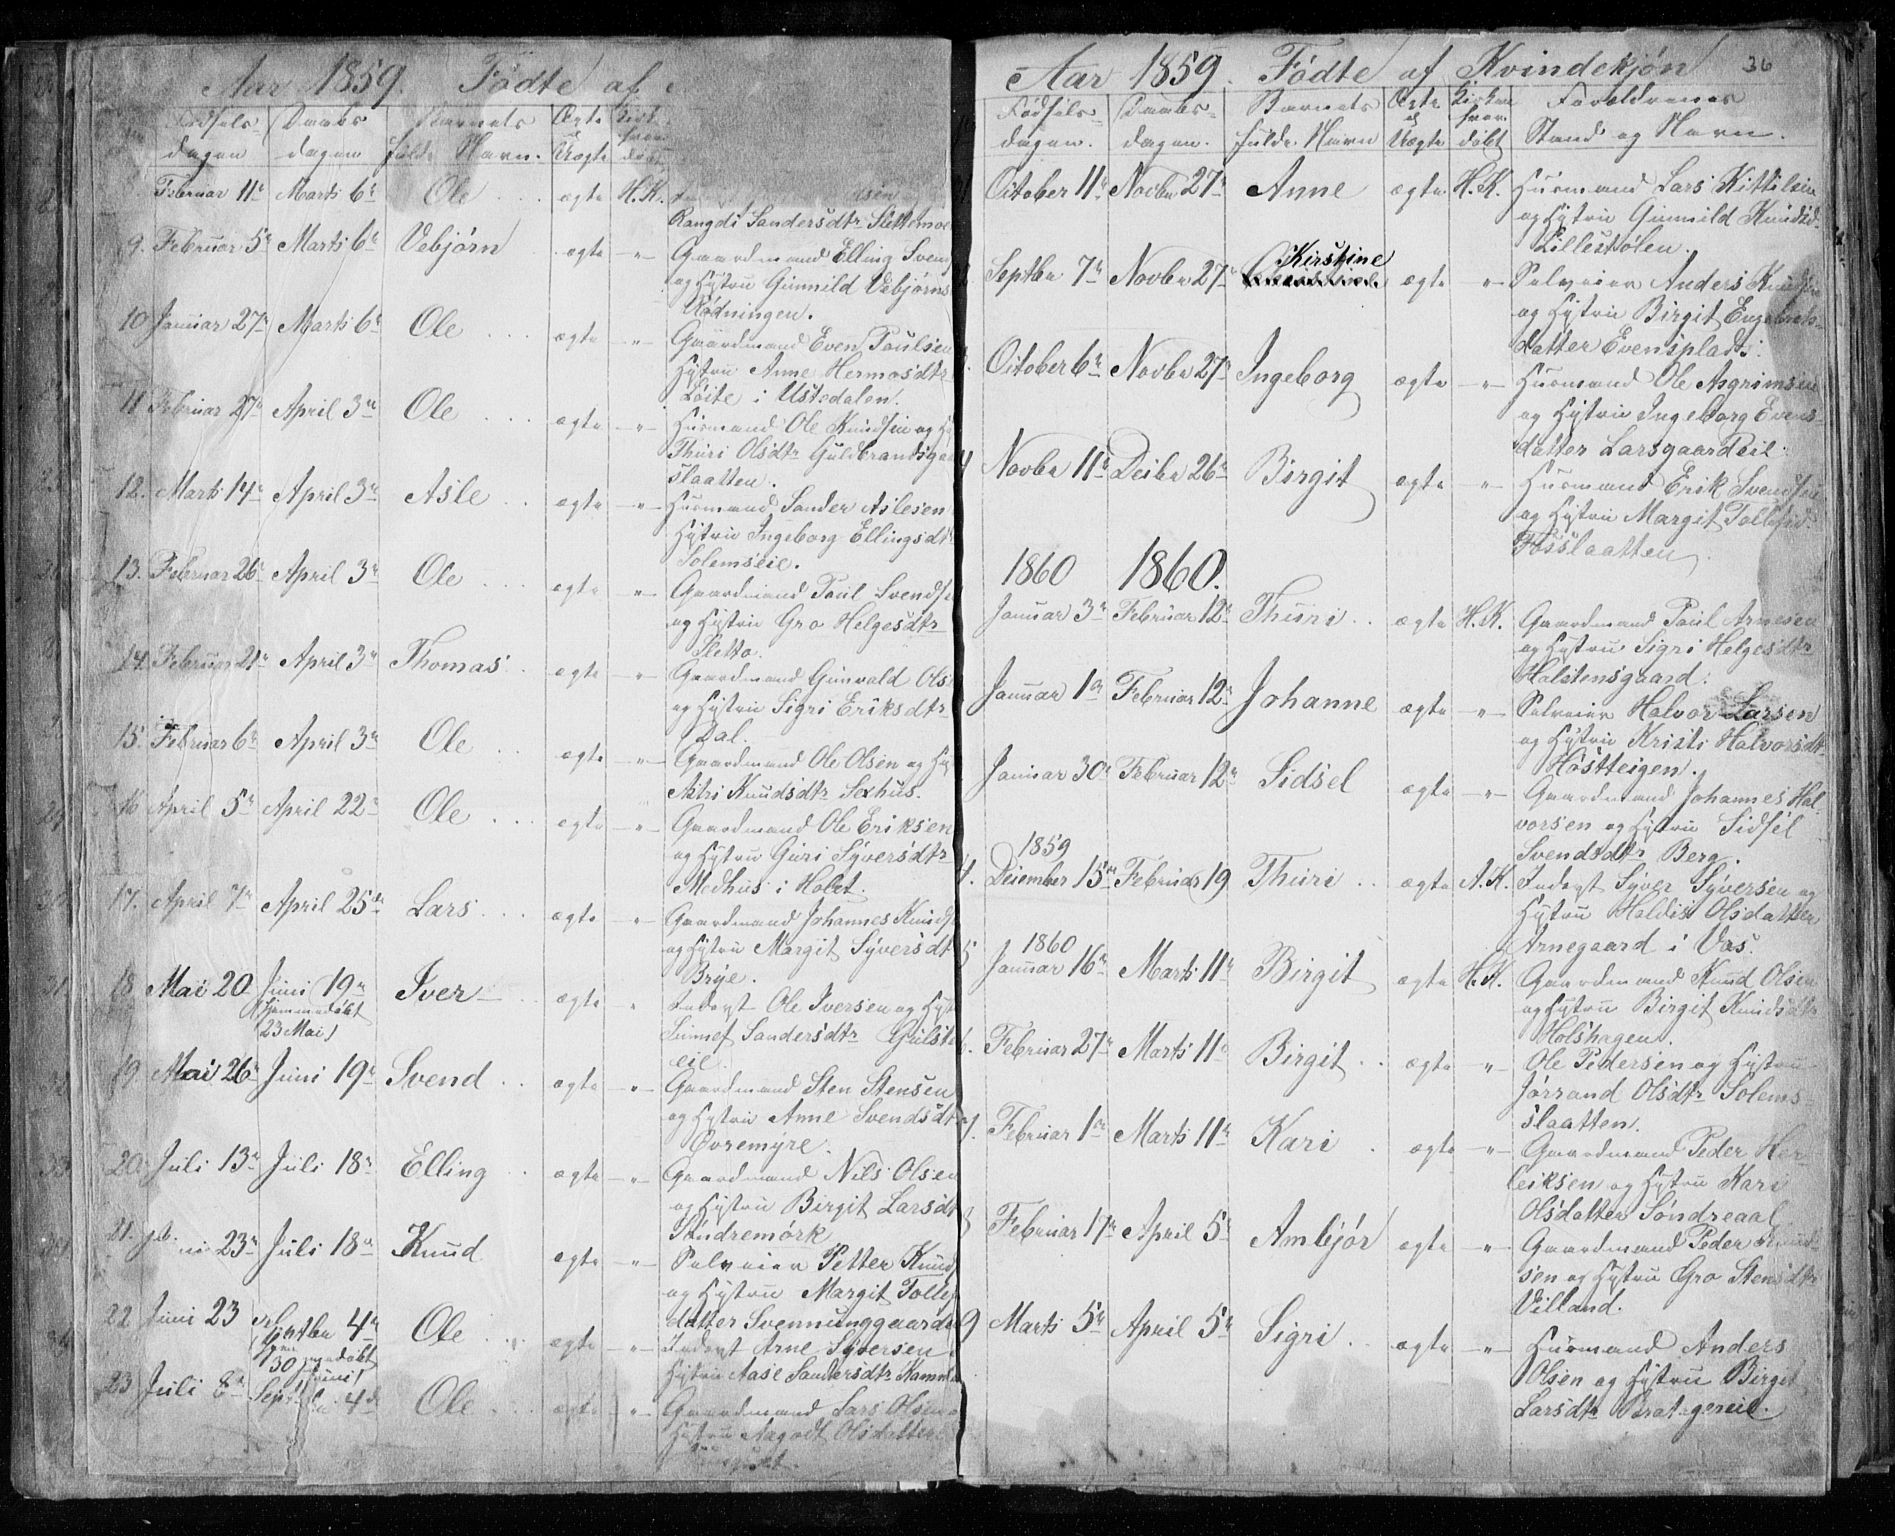 Aar 1859. Fødte af
Fødsels- Daabs Barnets Ægte Kirk
dagen dagen fulde Navn. Uægte døbt
Februar 11te Marts 6te Ole ægte H.K.
Rangdi Sandersdtr Slettemoe
9. Februar 5te Marts 6te Vebjørn ægte -"- Gaardmand Elling Svend
og Hustru Gunnild Vebjørns
Rødningen.
10 Januar 27de Marts 6te Ole ægte -"- Gaardmand Even Paulsen
Hustru Anne Hermosdtr
Løite i Ustedalen.
11 Februar 27de April 3die Ole ægte -"- Husmand Ole Knudsen og
Thuri Olsdtr Guldbrandsgaa
slaatten.
12. Marts 14de April 3die Asle ægte -"- Husmand Sander Aslesen
Hustru Ingeborg Ellingsdtr
Solemseie.
13. Februar 26de April 3die Ole ægte -"- Gaardmand Paul Svendse
og Hustru Gro Helgesdtr
Sletto.
14. Februar 21de April 3die Thomas ægte -"- Gaardmand Gunvald Ols
og Hustru Sigri Eriksdtr
Dal.
15. Februar 6te April 3die Ole ægte -"- Gaardmand Ole Olsen og Hu
Astri Knudsdtr Sexhus.
16 April 5te April 22de Ole ægte -"- Gaardmand Ole Eriksen
og Hustru Guri Syversdtr
Medhus i Holet.
17. April 7de April 25de Lars ægte -"- Gaardmand Johannes Knuds
og Hustru Margit Syversdt
Brye.
18 Mai 20 Juni 19de Iver ægte " Inderst Ole Iversen og Hust
(Hjemmedøbt Sunnef Sandersdtr
23 Mai) eie.
19 Mai 26de Juni 19de Svend ægte -"- Gaardmand Sten Stensen
og Hustru Anne Svendsdt
Øvremyre.
20. Juli 13de Juli 18de Elling ægte -"- Gaardmand Nils Olsen
og Hustru Birgit Larsdt
Søndremørk
21. 23de Juli 18de Knud ægte -"- Selveier Petter Knud
og Hustru Margit Tolle
datter Svennunggaarde
22 Juni 23 Septbr 4de Ole ægte -"- Inderst Arne Syversen
30 Juni) Hustru Aase Sandersdtr
23 Juli 8de 4de Ole ægte -"- Gaardmand Lars Olsen
Hustru Aagodt Olsdatter
Aar 1859. Fødte af Kvindekjøn 36
Fødsels- Daabs- Barnets Ægte Kirken Forældrenes
dagen. dagen. fulde Navn Uægte døbt Stand og Navn.
October 11te Novbr 27de Anne ægte H.K. Husmand Lars Kittilsen
og Hustru Gunnild Knudsd.
Lillestølen.
Septbr 7de Novbr 27de Kirstine ægte -"- Selveier Anders Knudsen
og Hustru Birgit Engebrets-
datter Evensplads.
October 6te Novbr 27de Ingeborg ægte -"- Husmand Ole Asgrimsen
og Hustru Ingeborg Evens-
datter Larsgaardeie.
4 Novbr 11te Decbr 26de Birgit ægte -"- Husmand Erik Svendsen
og Hustru Margit Tollefsd.
Fosslaatten.
1860 1860.
Januar 3die Februar 12te Thuri ægte H.K. Gaardmand Paul Arnesen
og Hustru Sigri Helgesdtr
Halstensgaard.
Januar 1ste Februar 12te Johanne ægte -"- Selveier Halvor Larsen
og Hustru Kristi Halvorsdt
Høstteigen.
Januar 30te Februar 12te Sidsel ægte -"- Gaardmand Johannes Hal-
vorsen og Hustru Sidsel
Svendsdtr Berg.
1859
4. December 15de Februar 19 Thuri ægte A.K. Inderst Syver Syversen og
Hustru Haldis Olsdatter
Arnegaard i Vas.
1860
5 Januar 16de Marts 11te Birgit ægte H.K. Gaardmand Knud Olsen
og Hustru Birgit Knudsdtr
Holshagen.
6. Februar 27de Marts 11te Birgit ægte -"- Ole Pedersen og Hustru
Jørrand Olsdtr Solems-
slaatten.
7. Februar 1ste Marts 11te Kari ægte -"- Gaardmand Peder Her-
leiksen og Hustru Kari
Olsdatter Søndreaal
8 Februar 17de April 5te Ambjør ægte -"- Gaardmand Peder Knud-
sen og Hustru Gro Stensdtr
Villand.
9 Marts 5te April 5te Sigri ægte -"- Husmand Anders
Olsen og Hustru Birgit
Larsdtr